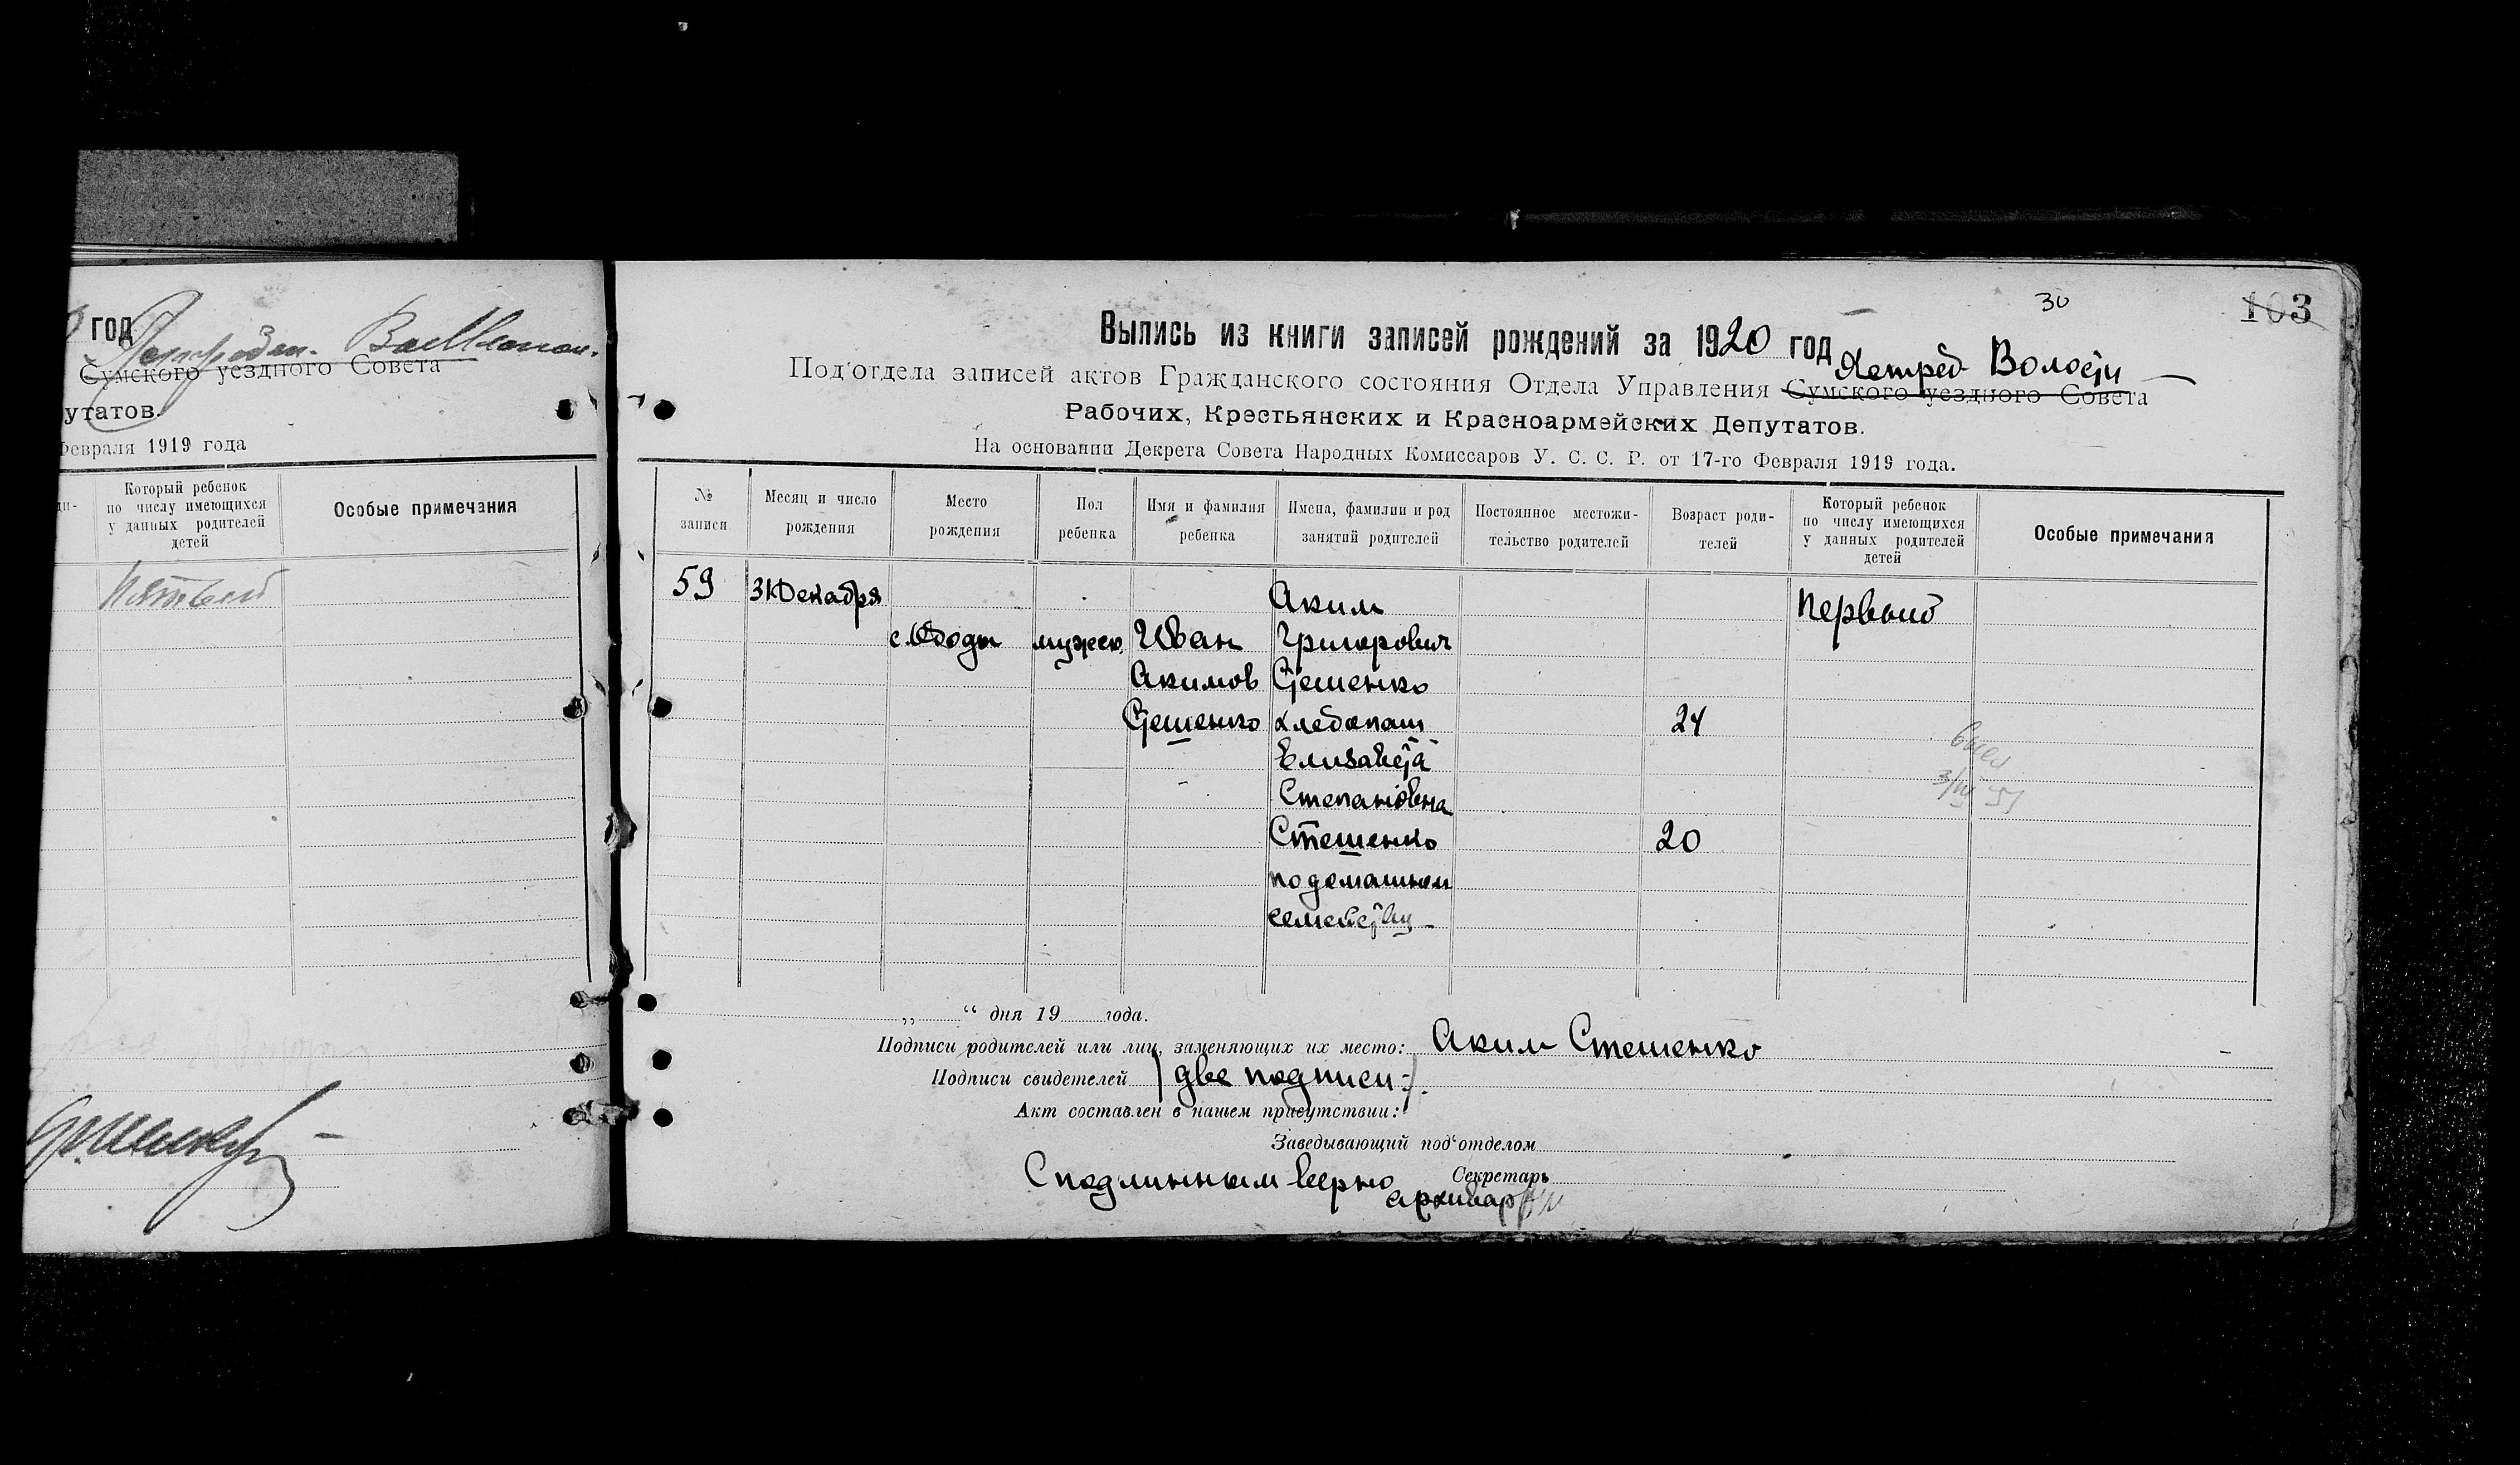 год
Сумского уездного Совета
утатов.
Февраля 1919 года
ди-
Который ребенок
по числу имеющихся
у данных родителей
детей
Особые примечания
Пятый
30
103
Выпись из книги записей рождений за 1920 год
Волости
Под'отдела записей актов Гражданского состояния Отдела Управления Сумского уездного Совета
Рабочих, Крестьянских и Красноармейских Депутатов.
На основании Декрета Совета Народных Комиссаров У. С. С. Р. от 17-го Февраля 1919 года.
№
записи
Месяц и число
рождения
Место
рождения
Пол
ребенка
Имя и фамилия
ребенка
Имена, фамилии и род
занятий родителей
Постоянное местожи-
тельство родителей
Возраст роди-
телей
Который ребенок
по числу имеющихся
у данных родителей
детей
Особые примечания
59
31 Декабря
мужск.
Иван
Акимов
Стешенко
Аким
Григорович
Стешенко
хлебопаш
Елизавета
Степановна
Стешенко
подомашнем
семейству
24
20
первый
„ “ дня 19 года.
Подписи родителей или лиц, заменяющих их место: Аким Стешенко
Подписи свидетелей две подписи
Акт составлен в нашем присутствии:
Заведывающий под'отделом
Секретарь
С подлинным верно